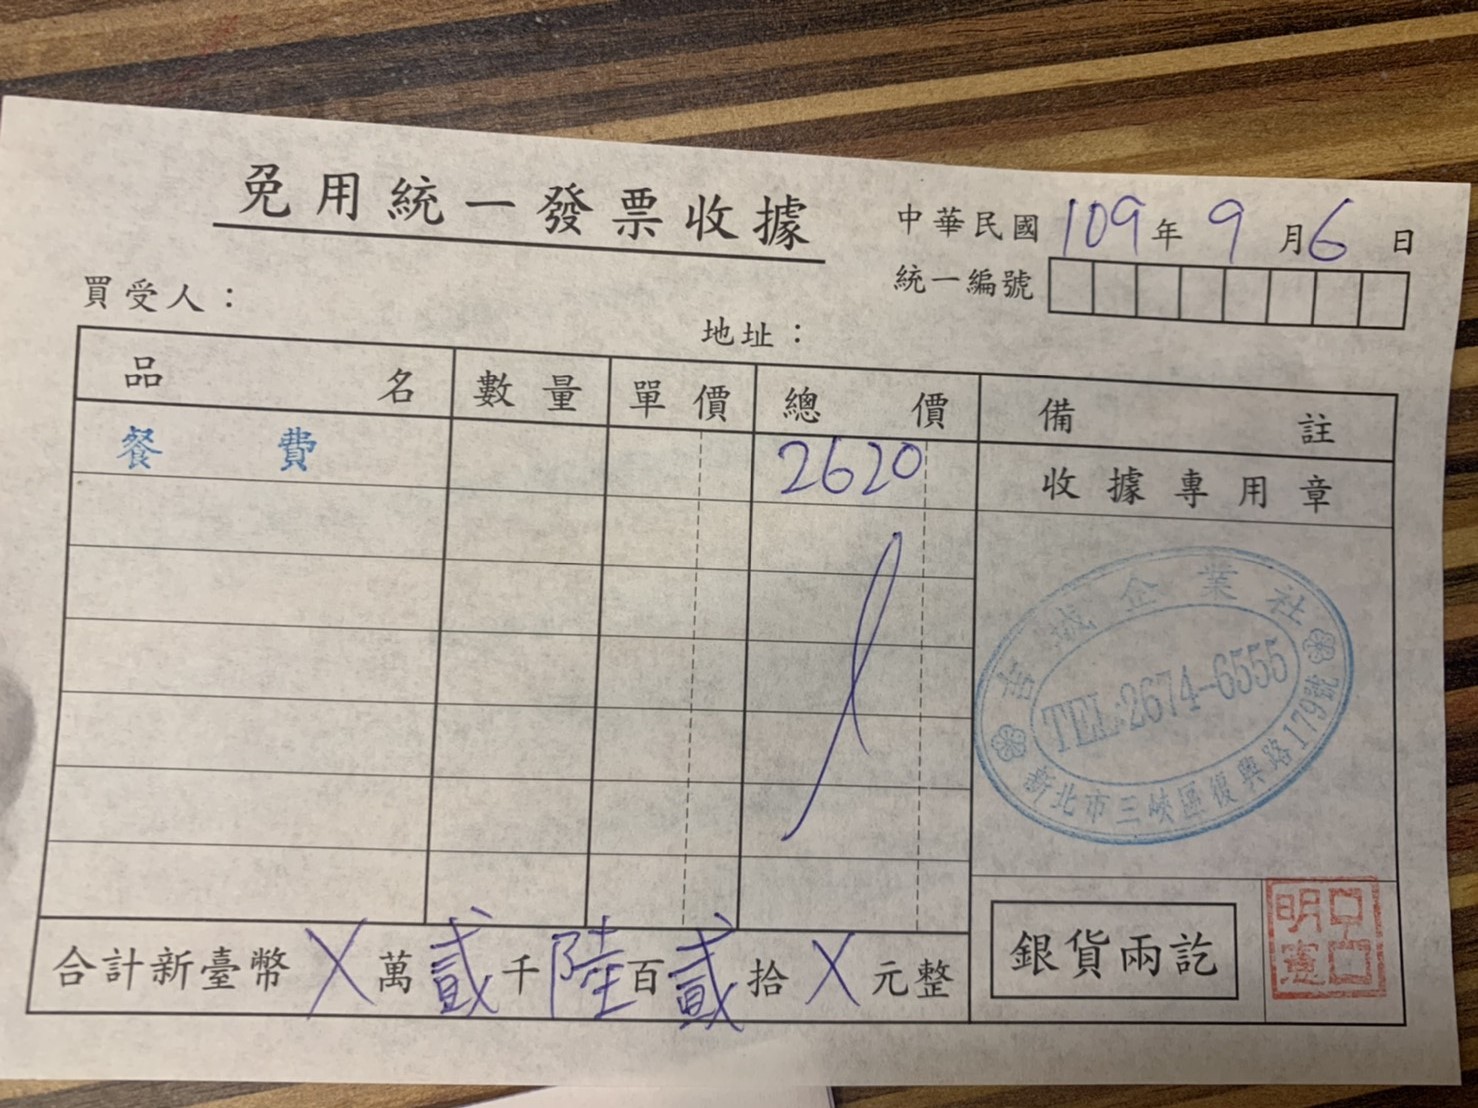 免用統一發票收據
中華民國109年9月6日
統一編號
買受人：
地址：
品名 數量 單價 總價 備註
餐費 2620
收據專用章
企業社
TEL:2674-6555
新北市三峽區復興路179號
合計新臺幣X萬貳千陸百貳拾X元整
銀貨兩訖